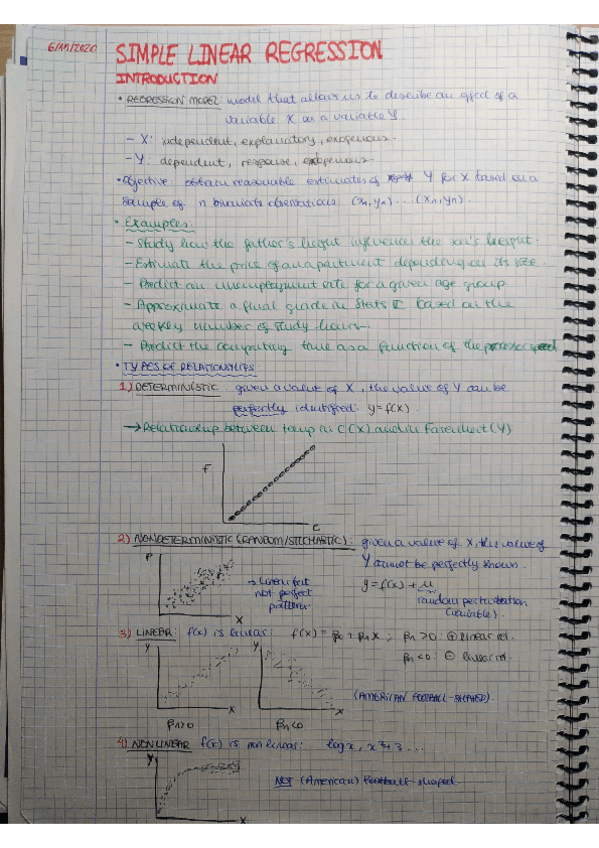 6/11/2020 SIMPLE LINEAR REGRESSION
INTRODUCTION
• REGRESSION MODEL: model that allows us to describe an effect of a
variable X on a variable Y.
- X: independent, explanatory, exogenous.
- Y: dependent, response, endogenous
• Objective: obtain reasonable estimates of Y for X based on a
sample of n bivariate observations (x₁,y₁) ... (xₙ,yₙ)
• Examples:
- Study how the father's height influences the son's height.
- Estimate the price of an apartment depending on its size.
- Predict an unemployment rate for a given age group
- Approximate a final grade in Stats II based on the
weekly number of study hours.
- Predict the computing time as a function of the processor speed
• TYPES OF RELATIONSHIPS
1) DETERMINISTIC given a value of X, the value of Y can be
perfectly identified. y=f(x).
→ Relationship between temp in C (X) and in Farenheit (Y)
F
C
2) NONDETERMINISTIC (RANDOM/STOCHASTIC): given a value of X, the value of
Y cannot be perfectly known.
P
→ Linear but
not perfect
X
y=f(x) + μ
random perturbation
(variable).
3) LINEAR: f(x) is linear: f(x) = β₀ + β₁x ; β₁>0: ⊕ linear rel.
β₁<0: ⊖ linear rel.
Y
X
Y
X
(AMERICAN FOOTBALL-SHAPED).
β₁>0
β₁<0
4) NONLINEAR f(x) is non linear: log x, x²+3 ...
Y
X
NOT (American) football-shaped.